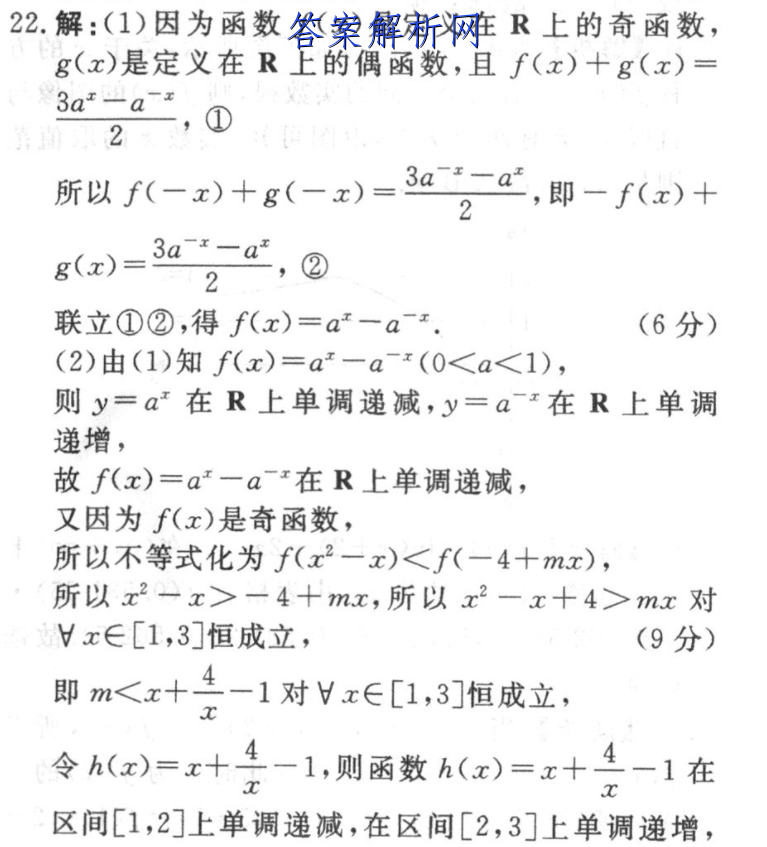 22.解:(1)因为函数 是定义在 R 上的奇函数,
答案解析网
g(x)是定义在 R 上的偶函数,且 f(x)+g(x)=
(3a^x-a^{-x})/2,①
所以 f(-x)+g(-x)=(3a^{-x}-a^x)/2,即-f(x)+
g(x)=(3a^{-x}-a^x)/2,②
联立①②,得 f(x)=a^x-a^{-x}. (6分)
(2)由(1)知 f(x)=a^x-a^{-x}(0<a<1),
则 y=a^x 在 R 上单调递减,y=a^{-x} 在 R 上单调
递增,
故 f(x)=a^x-a^{-x}在 R 上单调递减,
又因为 f(x)是奇函数,
所以不等式化为 f(x²-x)<f(-4+mx),
所以 x²-x>-4+mx,所以 x²-x+4>mx 对
∀x∈[1,3]恒成立, (9分)
即 m<x+4/x-1 对∀x∈[1,3]恒成立,
令 h(x)=x+4/x-1,则函数 h(x)=x+4/x-1 在
区间[1,2]上单调递减,在区间[2,3]上单调递增,